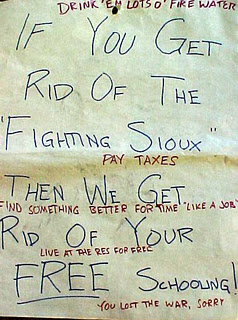 DRINK 'EM LOTS O' FIRE WATER
IF YOU GET
RID OF THE
"FIGHTING SIOUX"
PAY TAXES
THEN WE GET
FIND SOMETHING BETTER FOR TIME "LIKE A JOB"
RID OF YOUR
LIVE AT THE RES FOR FREE
FREE SCHOOLING!
YOU LOST THE WAR, SORRY